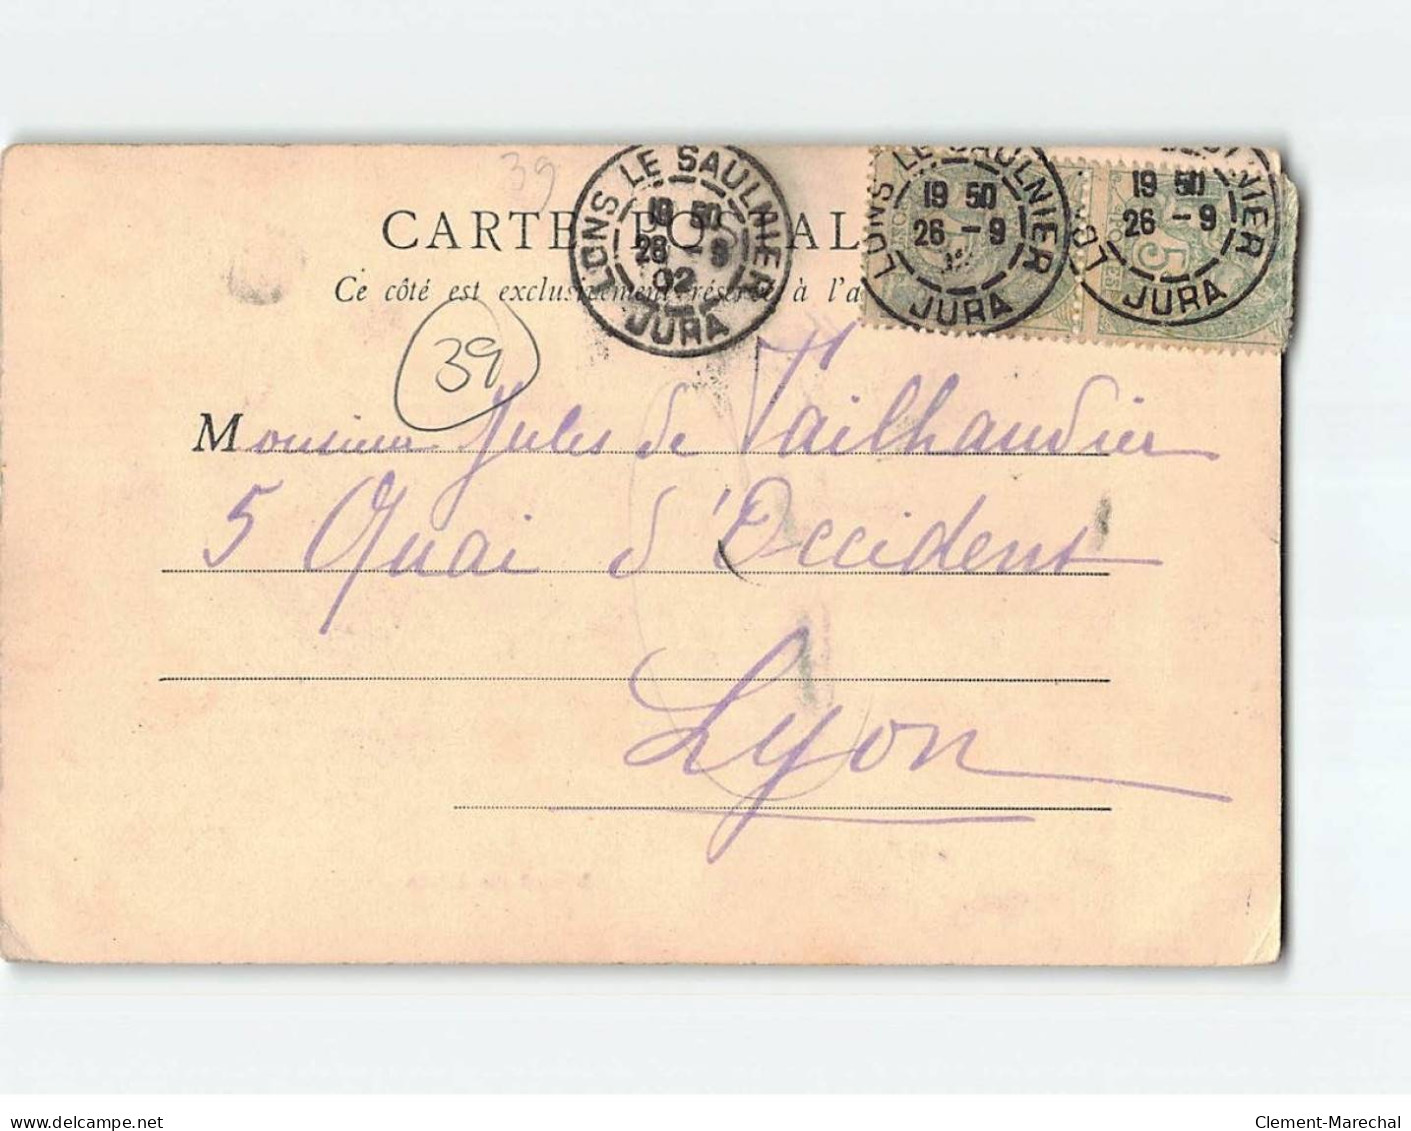 39
CARTE POSTALE
Ce côté est exclusivement réservé à l'a
39
LONS LE SAULNIER
19 50
26 - 9
02
JURA
LONS LE SAULNIER
19 50
26 - 9
JURA
19 50
26 - 9
JURA
5
Monsieur Jules de Vailhandier
5 Quai d'Occident
Lyon
www.delcampe.net
Clement-Marechal